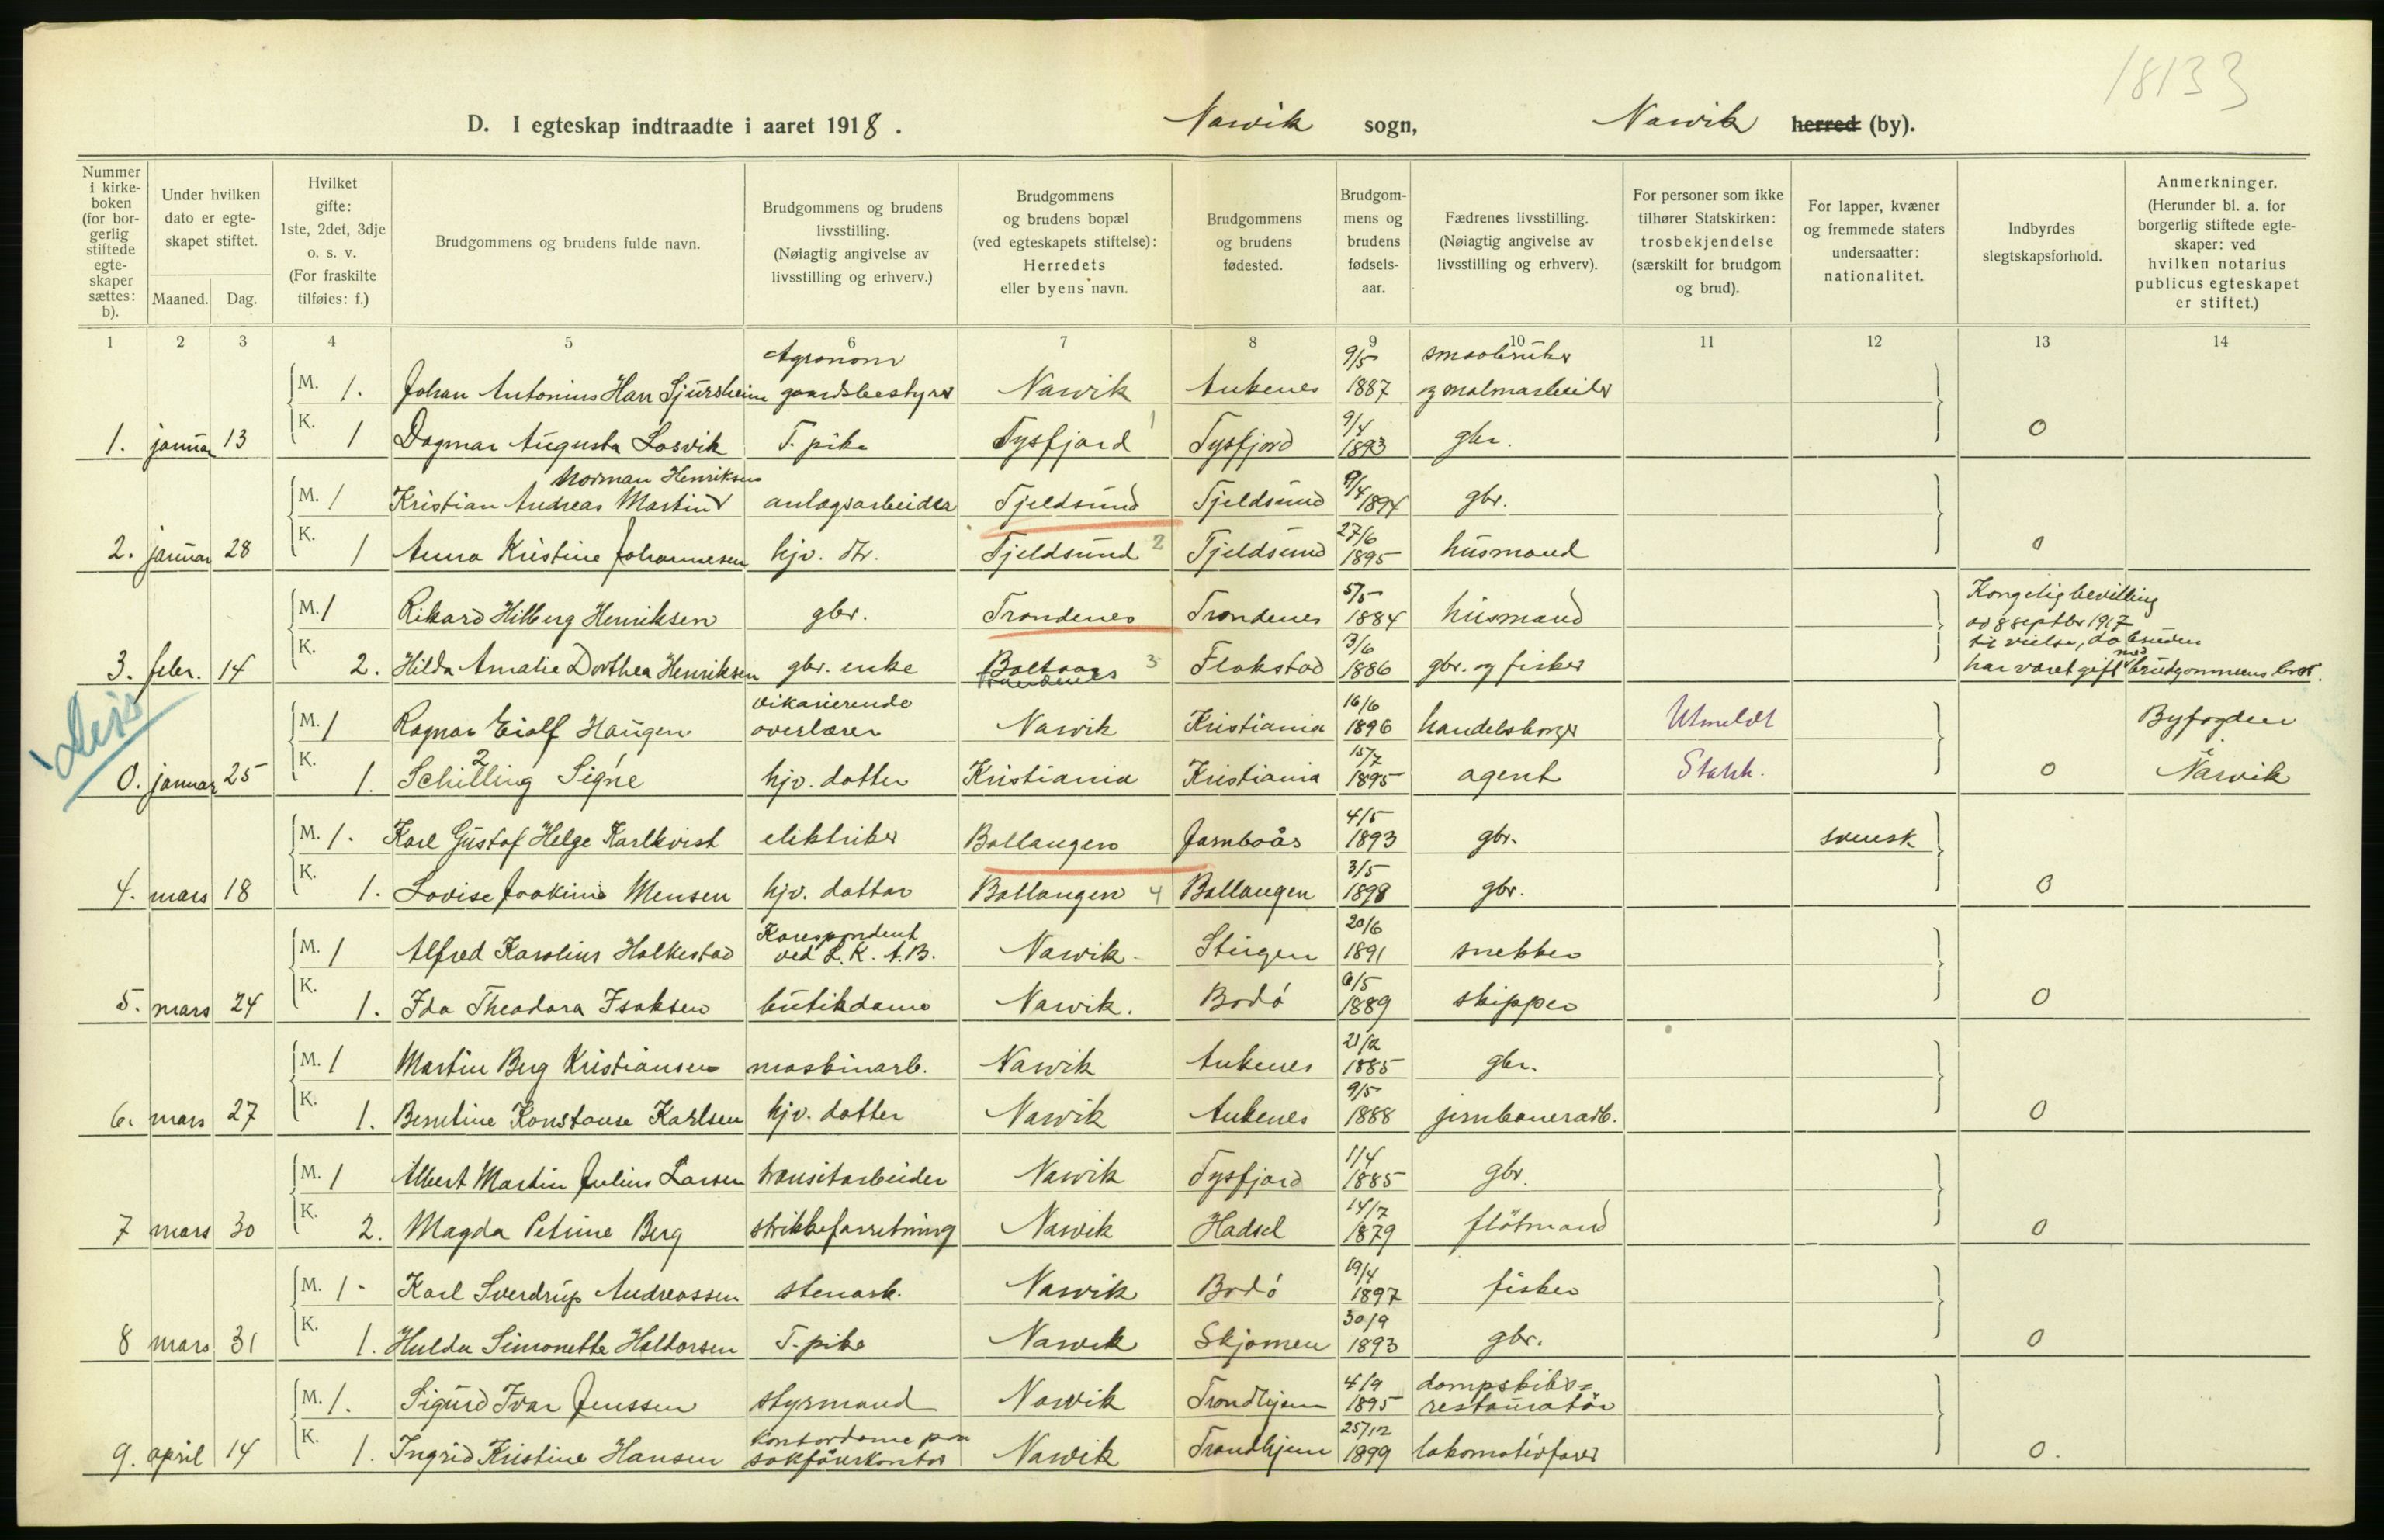 18133
D. I egteskap indtraadte i aaret 1918. Narvik sogn, Narvik herred (by).
Nummer i kirkeboken (for borgerlig stiftede egteskaper sættes: b).
Under hvilken dato er egteskapet stiftet.
Maaned. Dag.
Hvilket gifte: 1ste, 2det, 3dje o. s. v. (For fraskilte tilføies: f.)
Brudgommens og brudens fulde navn.
Brudgommens og brudens livsstilling. (Nøiagtig angivelse av livsstilling og erhverv.)
Brudgommens og brudens bopæl (ved egteskapets stiftelse): Herredets eller byens navn.
Brudgommens og brudens fødested.
Brudgommens og brudens fødselsaar.
Fædrenes livsstilling. (Nøiagtig angivelse av livsstilling og erhverv).
For personer som ikke tilhører Statskirken: trosbekjendelse (særskilt for brudgom og brud).
For lapper, kvæner og fremmede staters undersaatter: nationalitet.
Indbyrdes slegtskapsforhold.
Anmerkninger. (Herunder bl. a. for borgerlig stiftede egteskaper: ved hvilken notarius publicus egteskapet er stiftet.)
1 2 3 4 5 6 7 8 9 10 11 12 13 14
Agronom 9/5 smaabruker
M. 1. Johan Antonius Harr Sjursheim gaardsbestyrer Narvik Ankenes 1887 og malmarbeider
1. januar 13 K. 1 Dagmar Augusta Losvik T. pike Tysfjord 1 Tysfjord 9/4 1893 gbr. 0
Norman Henriksen
M. 1 Kristian Andreas Martin anlægsarbeider Tjeldsund Tjeldsund 9/4 1894 gbr.
2. januar 28 K. 1 Anna Kristine Johannesen hjv. dtr. Tjeldsund 2 Tjeldsund 27/6 1895 husmand 0
M. 1 Rikard Hilberg Henriksen gbr. Trondenes Trondenes 5/5 1884 husmand Kongelig bevilling
av 8 septbr 1917
til vielse, da bruden
3. febr. 14 K. 2. Hilda Amalie Dorthea Henriksen gbr. enke Trondenes 3 Flakstad 3/6 1886 gbr. og fisker har været gift med brudgommens bror.
vikarierende
M. 1 Ragnar Eiolf Haugen overlærer Narvik Kristiania 16/6 1896 handelsborger Utmeldt Byfogden
i
0. januar 25 K. 1. Schilling 2 Signe 1 hjv. datter Kristiania Kristiania 15/7 1895 agent Statsk. 0 Narvik
M. 1. Karl Gustaf Helge Karlkvist elektriker Ballangen Jarnboås 4/5 1893 gbr. svensk
4. mars 18 K. 1. Lovise Joakime Mensen hjv. datter Ballangen 4 Ballangen 3/5 1898 gbr. 0
Korespondent
M. 1 Alfred Karolius Halkestad ved L. K. A. B. Narvik. Steigen 20/6 1891 snekker
5. mars 24 K. 1. Ida Theodora Isaksen butikdame Narvik. Bodø 6/5 1889 skipper 0
M. 1 Martin Berg Kristiansen maskinarb. Narvik Ankenes 21/12 1885 gbr.
6. mars 27 K. 1. Berntine Konstanse Karlsen hjv. datter Narvik Ankenes 9/5 1888 jernbanearb. 0
M. 1 Albert Martin Julius Larsen transitarbeider Narvik Tysfjord 1/4 1885 gbr.
7 mars 30 K. 2. Magda Petrine Berg strikkeforretning Narvik Hadsel 14/7 1879 fløtmand 0
M. 1- Karl Sverdrup Andreassen stenarb. Narvik Bodø 19/4 1897 fisker
8 mars 31 K. 1. Hulda Simonette Haldorsen T. pike Narvik Skjomen 30/9 1893 gbr. 0
M. 1. Sigurd Ivar Jenssen styrmand Narvik Trondhjem 4/9 1895 dampskibs=
restauratør
kontordame paa
9. april 14 K. 1. Ingrid Kristine Hansen sakførerkontor Narvik Trondhjem 25/12 1899 lokomotivfører 0.